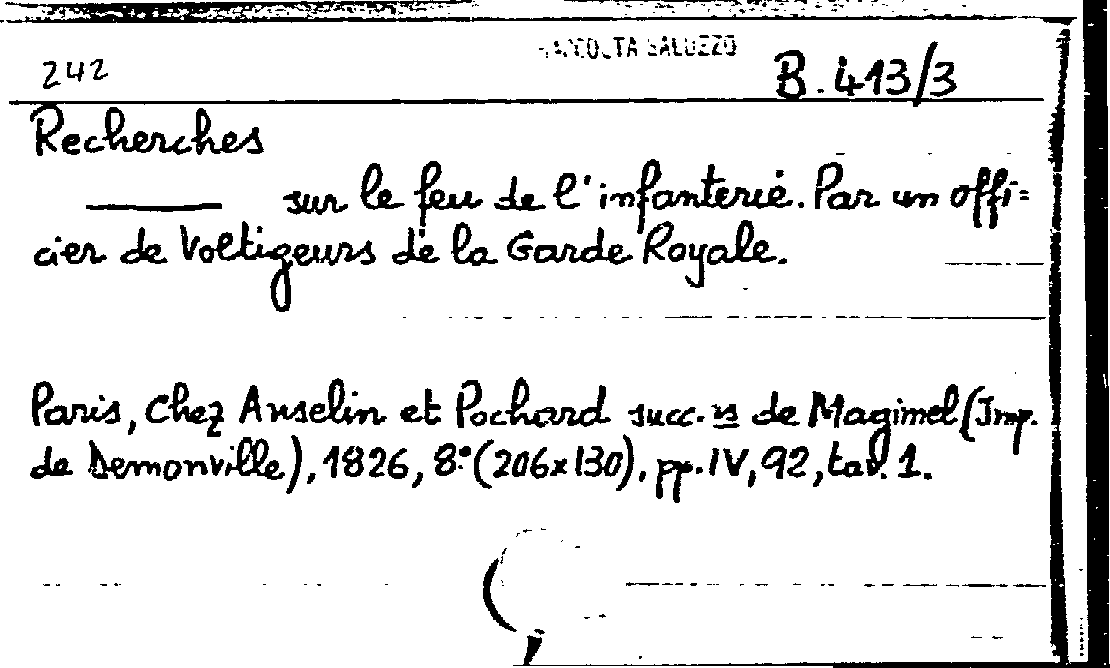 RACCOLTA SALUZZO
242 B.413/3
Recherches
sur le feu de l'infanterie. Par un offi=
cier de Voltigeurs de la Garde Royale.
Paris, Chez Anselin et Pochard succ.rs de Magimel (Imp.
de Demonville), 1826, 8.° (206x130), pp. IV, 92, tav. 1.